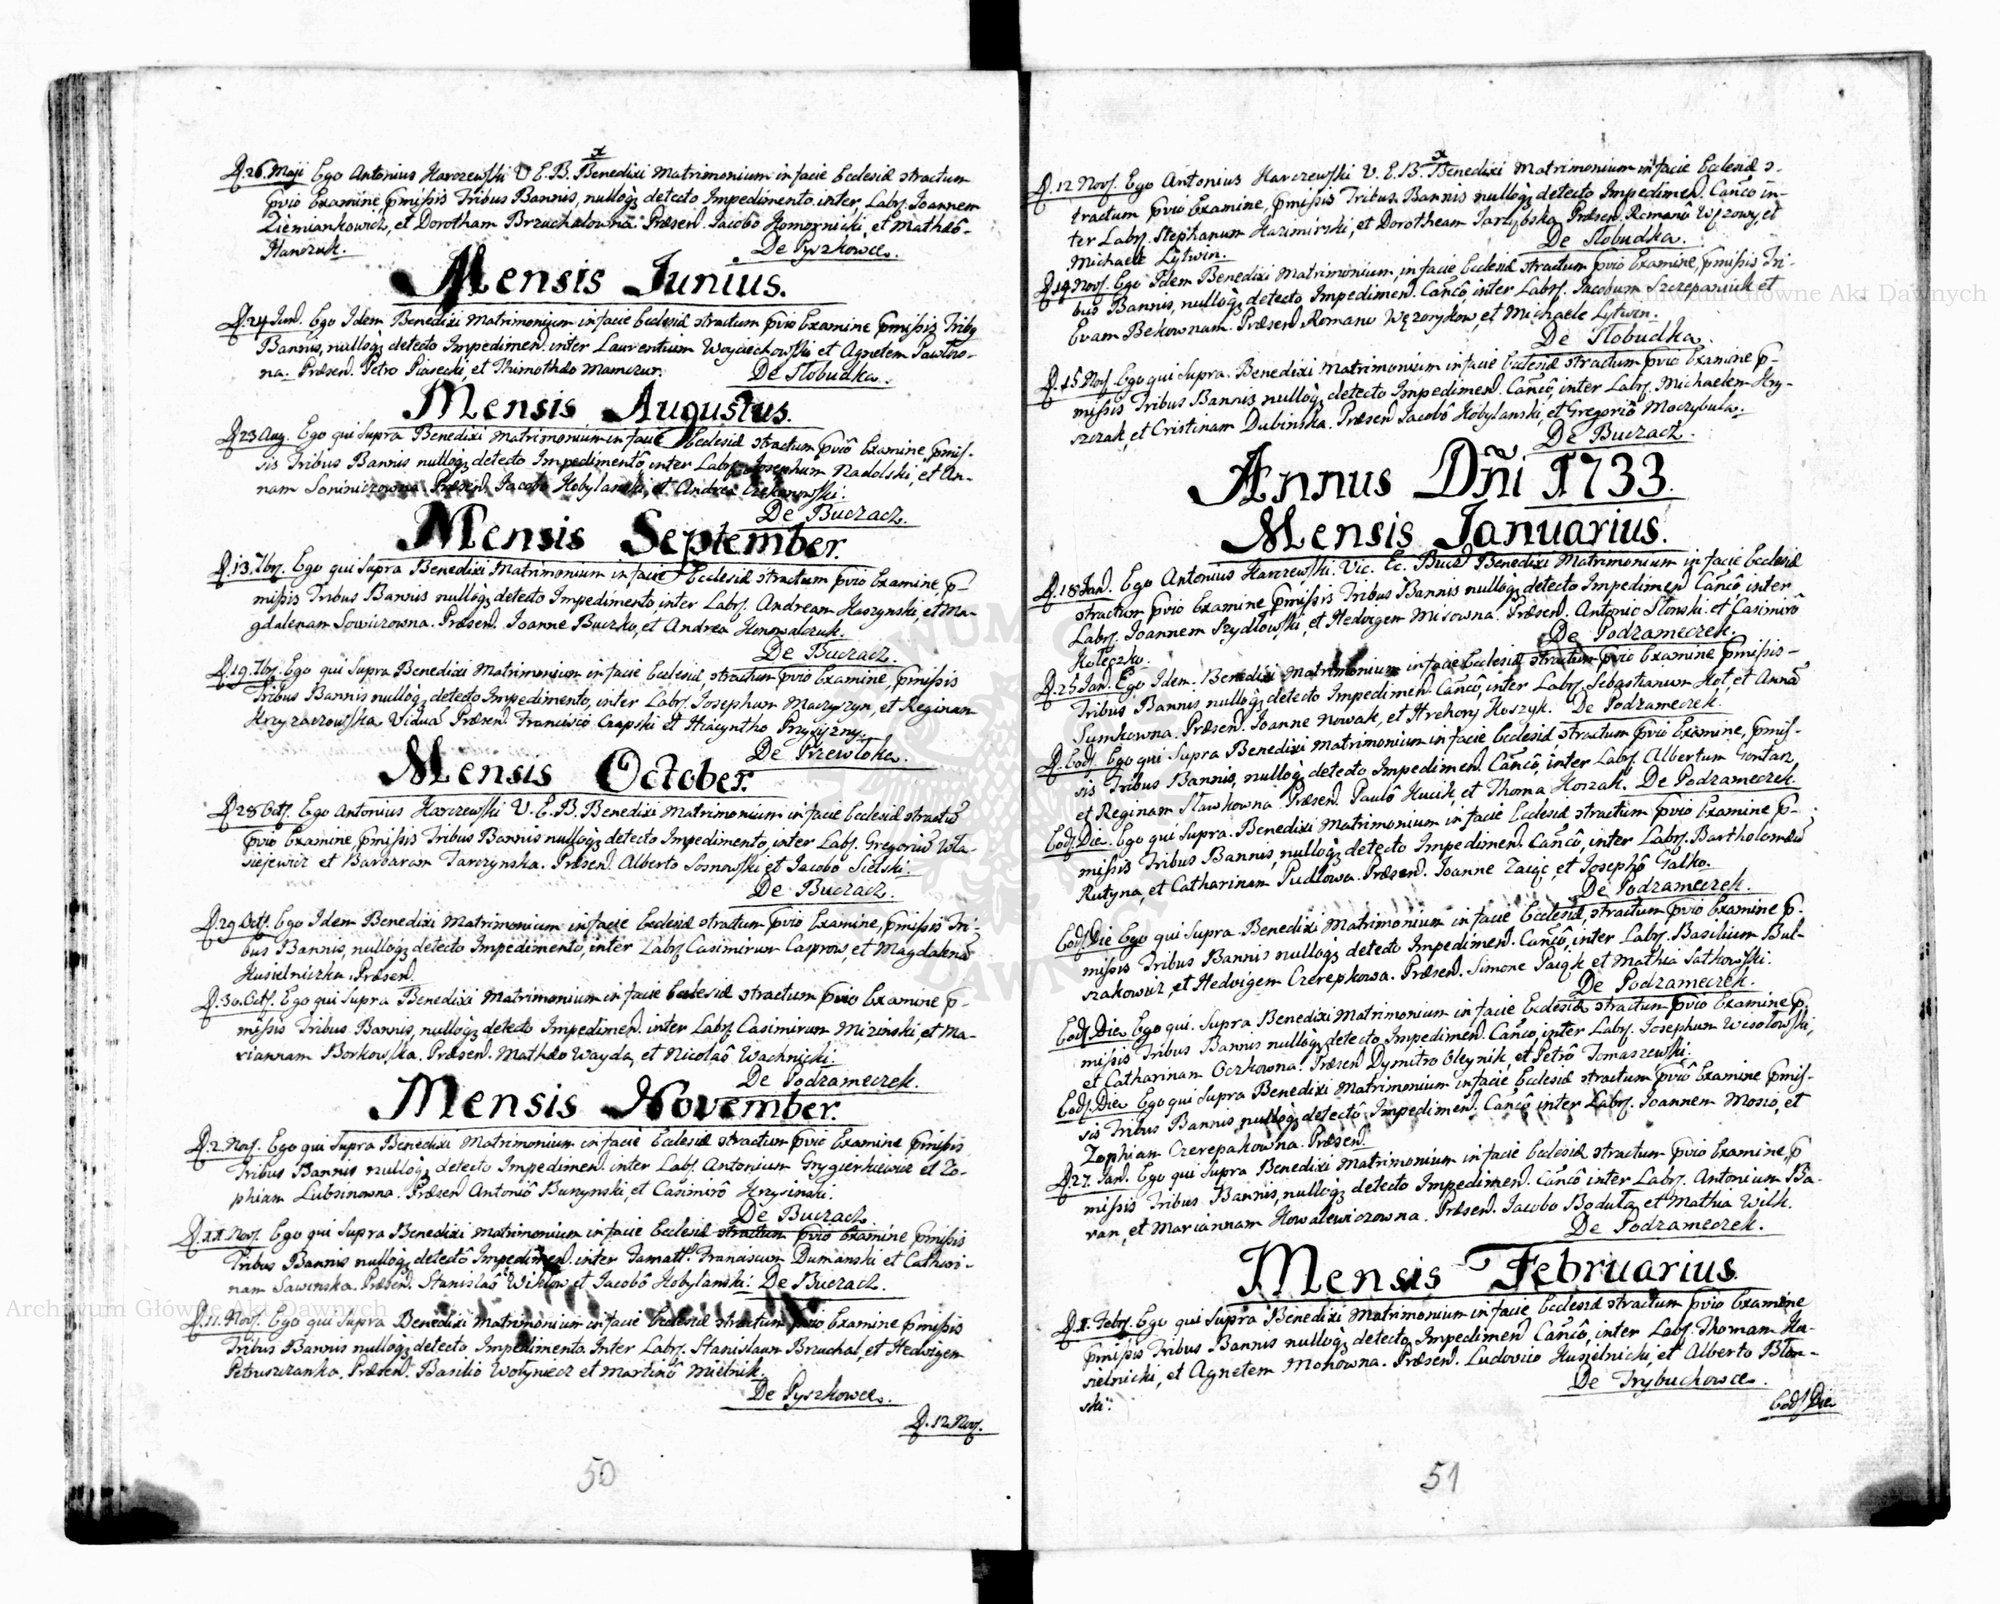 x
D. 26. Maji Ego Antonius Harczewski V. E. B. Benedixi Matrimonium in facie Ecclesiæ stractum
p̃vio Examine p̃missis Tribus Bannis, nulloq; detecto Impedimento inter Labs. Joannem
Ziemiankowicz, et Dorotham Brzuchalowna. Præsen. Jacobo Homornicki, et Mathæo
Hanczuk.
De Pyszkowce.
Mensis Junius.
D. 24 Jun. Ego Idem Benedixi Matrimonium in facie Ecclesiæ stractum p̃vio Examine p̃missis Tribq
Bannis, nulloq; detecto Impedimen. inter Laurentium Woyciechowski et Agnetem Pawlow-
na. Præsen. Petro Piasecki, et Thimothæo Mamczur.
De Slobudka.
Mensis Augustus.
D. 23 Aug. Ego qui Supra Benedixi Matrimonium in facie Ecclesiæ stractum p̃vio Examine, p̃mis-
sis Tribus Bannis nulloq; detecto Impedimentô, inter Labs. Josephum Nadolski, et An-
nam Præsen. Jacobo Kobylanski, et Andrea
De Buczacz.
Mensis September.
D. 13. 7br. Ego qui Supra Benedixi Matrimonium in facie Ecclesiæ stractum p̃vio Examine, p̃-
missis Tribus Bannis nulloq; detecto Impedimento, inter Labs. Andream Kaszynski, et Ma-
gdalenam Sowiczowna. Præsen. Joanne Buczko, et Andrea Konowalczuk.
De Buczacz.
D. 19. 7br. Ego qui Supra Benedixi Matrimonium in facie Ecclesiæ stractum p̃vio Examine, p̃missis
Tribus Bannis nulloq; detecto Impedimento, inter Labs. Josephum Maczyszyn, et Reginam
Krzyzaczowska Vidua Præsen. Francisco Czapski et Hiacyntho Przyszny.
De Przewloka.
Mensis October.
D. 28 Oct. Ego Antonius Harczewski V. E. B. Benedixi Matrimonium in facie Ecclesiæ stractũ
p̃vio Examine p̃missis Tribus Bannis nulloq; detecto Impedimento, inter Labs. Gregoriũ Wla-
siejewicz et Barbaram Tarczynska. Præsen. Alberto Sosnowski et Jacobo Sielski.
De Buczacz.
D. 29 Oct. Ego Idem Benedixi Matrimonium in facie Ecclesiæ stractum p̃vio Examine, p̃missis Tri-
bus Bannis, nulloq; detecto Impedimento, inter Labs. Casimirum Casprow, et Magdalenã
Husielniczka. Præsen.
D. 30. Oct. Ego qui Supra Benedixi Matrimonium in facie Ecclesiæ stractum p̃vio Examine p̃-
missis Tribus Bannis, nulloq; detecto Impedimen. inter Labs. Casimirum Mizinski, et Ma-
riannam Borkowska. Præsen. Mathæo Wayda, et Nicolaô Wachnicki.
De Podzameczek.
Mensis November.
D. 2. Nov. Ego qui Supra Benedixi Matrimonium in facie Ecclesiæ stractum p̃vio Examine p̃missis
Tribus Bannis nulloq; detecto Impedimen. inter Labs. Antonium Grygierkiewicz et Zo-
phiam Lubsinowna. Præsen. Antoniô Buszynski, et Casimirô Krysinski.
De Buczacz
D. 11. Nov. Ego qui Supra Benedixi Matrimonium in facie Ecclesiæ stractum p̃vio Examine p̃missis
Tribus Bannis nulloq; detectô Impedimen. inter Famatt. Franciscum Dumanski et Cathari-
nam Sawinska. Præsen. Stanislaô Wiktow, et Jacobô Kobylanski. De Buczacz.
D. 11. Nov. Ego qui Supra Benedixi Matrimonium in facie Ecclesiæ stractum p̃vio Examine p̃missis
Tribus Bannis nulloq; detecto Impedimento. Inter Labs. Stanislaum Brzuchal, et Hedvigem
Petruszczanka. Præsen. Basilio Wolyniecz et Martinô Mielnik.
De Pyszkowce.
D. 12 Nov.
50
x
D. 12 Nov. Ego Antonius Harczewski V. E. B. Benedixi Matrimonium in facie Ecclesiæ s-
tractum p̃vio Examine, p̃missis Tribus Bannis nulloq; detecto Impedimen. Cañcô in-
ter Labs. Stephanum Kazimirski, et Dorotheam Præsen. Romanô et
Michaele Lytwin.
De Slobudka.
D. 14 Nov. Ego Idem Benedixi Matrimonium, in facie Ecclesiæ stractum p̃vio Examine, p̃missis Tri-
bus Bannis, nulloq; detecto Impedimen. Cañcô, inter Labs. Jacobum Szczepaniuk et
Evam Bekownam. Præsen. Romano et Michaele Lytwin.
De Slobudka.
D. 15 Nov. Ego qui Supra. Benedixi Matrimonium in facie Ecclesiæ stractum p̃vio Examine p̃-
missis Tribus Bannis nulloq; detecto Impedimen. Cañcô, inter Labs. Michaelem Kry-
szczak, et Cristinam Dubinska. Præsen. Jacobô Kobylanski, et Gregoriô Moczybula.
De Buczacz.
Annus Dñi 1733.
Mensis Januarius.
D. 18 Jan. Ego Antonius Harczewski. Vic. Ec. Bucz Benedixi Matrimonium in facie Ecclesiæ
stractum p̃vio Examine p̃missis Tribus Bannis nulloq; detecto Impedimen. Cañcô inter
Labs. Joannem Szydlowski, et Hedvigem Misowna. Præsen. Antonio Slonski et Casimirô
Koleczko.
De Podzameczek.
D. 25 Jan. Ego Idem. Benedixi Matrimonium in facie Ecclesiæ stractum p̃vio Examine p̃missis
Tribus Bannis nulloq; detecto Impedimen. Cañcô, inter Labs. Sebastianum Kot, et Annã
Tumkowna. Præsen. Joanne Nowak, et Hrehory Koszyk. De Podzameczek.
D. Eod. Ego qui Supra Benedixi Matrimonium in facie Ecclesiæ, stractum p̃vio Examine, p̃mis-
sis Tribus Bannis, nulloq; detecto Impedimen. Cañcô, inter Labs. Albertum Gontarz
et Reginam Slawkowna. Præsen. Paulô Hucik, et Thoma Koszak. De Podzameczek.
Eod. Die. Ego qui Supra. Benedixi Matrimonium in facie Ecclesiæ stractum p̃vio Examine p̃-
missis Tribus Bannis, nulloq; detecto Impedimen. Cañcô, inter Labs. Bartholomæũ
Rutyna, et Catharinam Pudlowa. Præsen. Joanne Zaiąc, et Josephô Galko.
De Podzameczek.
Eod. Die Ego qui Supra. Benedixi Matrimonium in facie Ecclesiæ, stractum p̃vio Examine p̃-
missis Tribus Bannis nulloq; detecto Impedimen. Cañcô, inter Labs. Basilium Bul-
szakowicz, et Hedvigem Czerepkowa. Præsen. Simone Paigk et Mathia Satkowski.
De Podzameczek.
Eod. Die Ego qui. Supra Benedixi Matrimonium in facie Ecclesiæ stractum p̃vio Examine p̃-
missis Tribus Bannis nulloq; detecto Impedimen. Cañcô, inter Labs. Josephum Wisolowski,
et Catharinam Oczkowna. Præsen Dymitro Oleynik, et Petrô Tomaszewski.
Eod. Die Ego qui Supra Benedixi Matrimonium in facie Ecclesiæ stractum p̃vio Examine p̃mis-
sis Tribus Bannis nulloq; detectô Impedimen. Cañcô inter Labs. Joannem Mosio, et
Zophiam Czerepakowna. Præsen.
D. 27. Jan. Ego qui Supra Benedixi Matrimonium in facie Ecclesiæ stractum p̃vio Examine, p̃-
missis Tribus Bannis, nulloq; detecto Impedimen. Cañcô inter Labs. Antonium Ba-
ran, et Mariannam Kowalewiczowna. Præsen. Jacobo Boduła, et Mathia Wilk.
De Podzameczek.
Mensis Februarius.
D. 1. Febr. Ego qui Supra Benedixi Matrimonium in facie Ecclesiæ stractum p̃vio Examine
p̃missis Tribus Bannis nulloq; detecto Impedimen Cañcô, inter Labs. Thomam Hu-
sielnicki, et Agnetem Mohowna. Præsen. Ludovico Husielnicki, et Alberto Blon-
ski.
De Trybuchowce.
Eod. Die
51
Archiwum Główne Akt Dawnych
Archiwum Główne Akt Dawnych